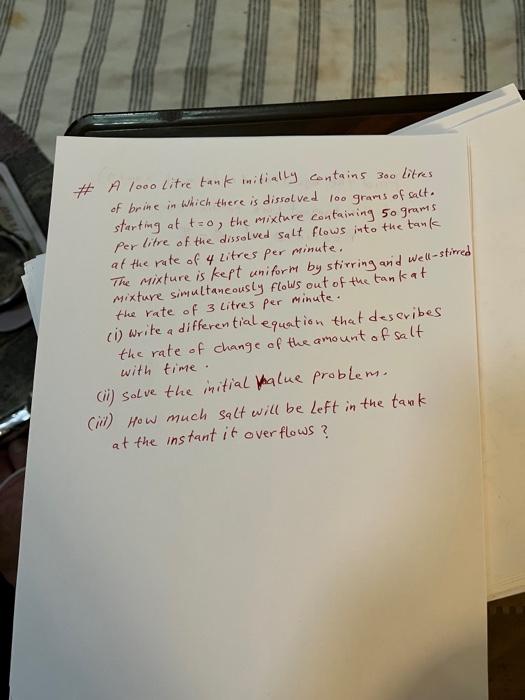 # A 1000 Litre tank initially contains 300 litres
of brine in which there is dissolved 100 grams of salt.
starting at t=0, the mixture containing 50 grams
Per litre of the dissolved salt flows into the tank
at the rate of 4 Litres per minute.
The mixture is kept uniform by stirring and well-stirred
mixture simultaneously flows out of the tank at
the rate of 3 Litres per minute.
(i) Write a differential equation that describes
the rate of change of the amount of salt
with time.
(ii) Solve the initial value problem.
(iii) How much salt will be left in the tank
at the instant it overflows?